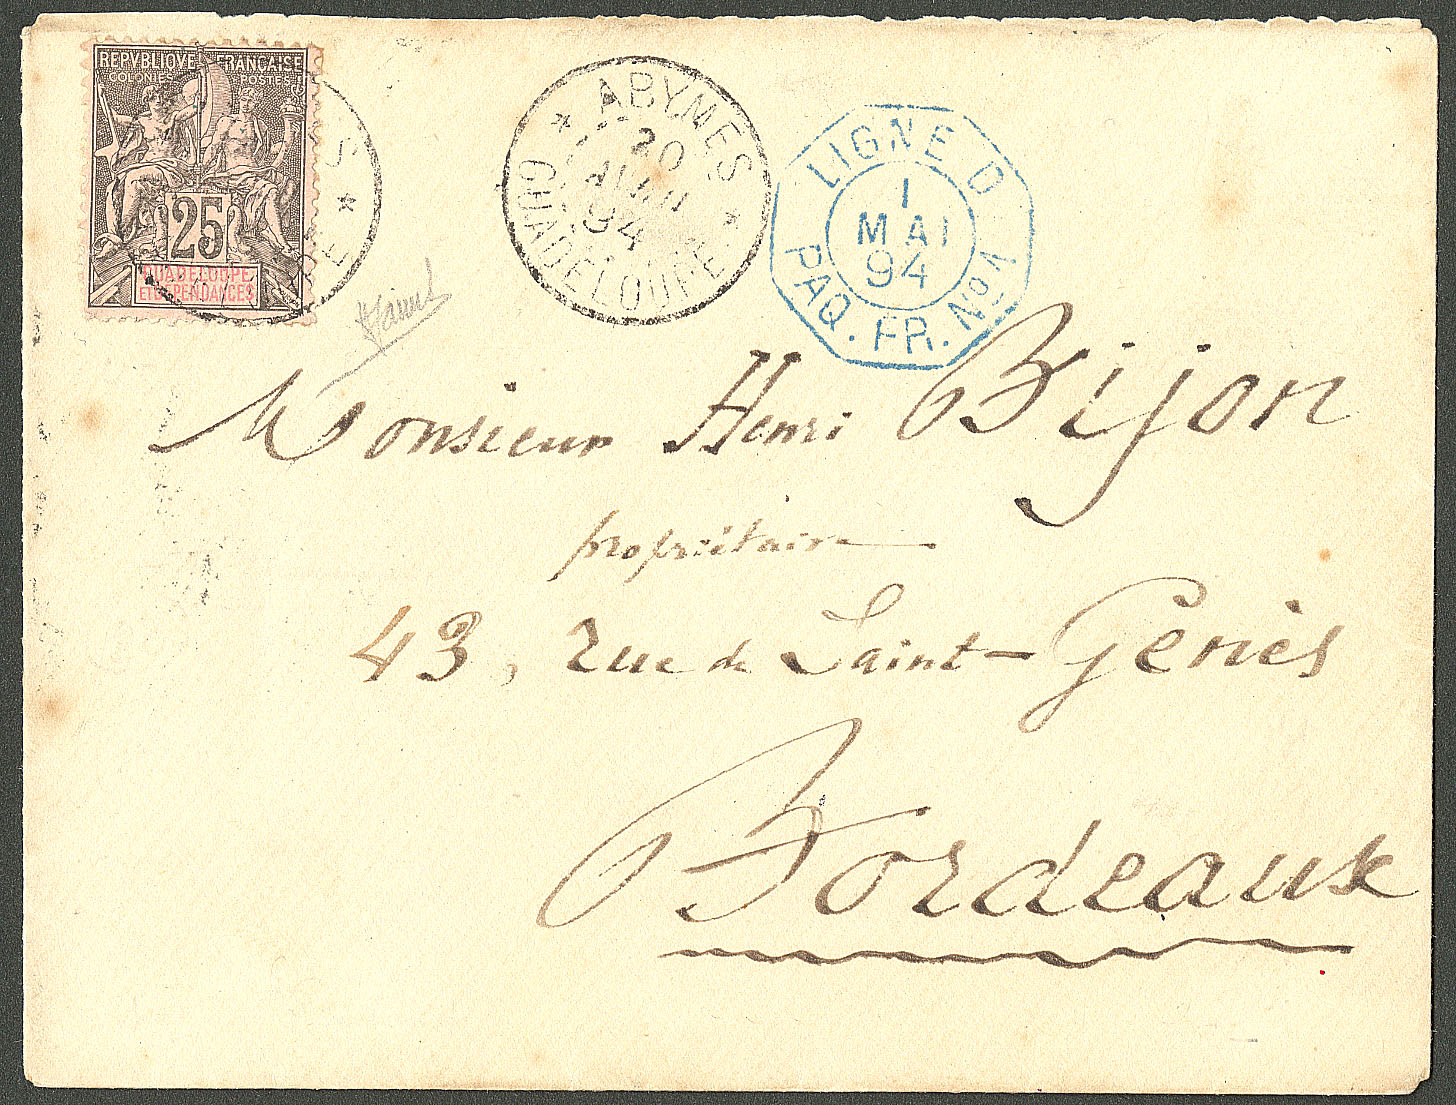 REPVBLIQVE FRANÇAISE
COLONIES POSTES
25
GUADELOUPE
ET DEPENDANCES
* ABYMES *
20
94
GUADELOUPE
LIGNE D
1
MAI
94
PAQ. FR. No 1
Monsieur Henri Bijon
propriétaire
43, rue de Saint-Geniès
Bordeaux